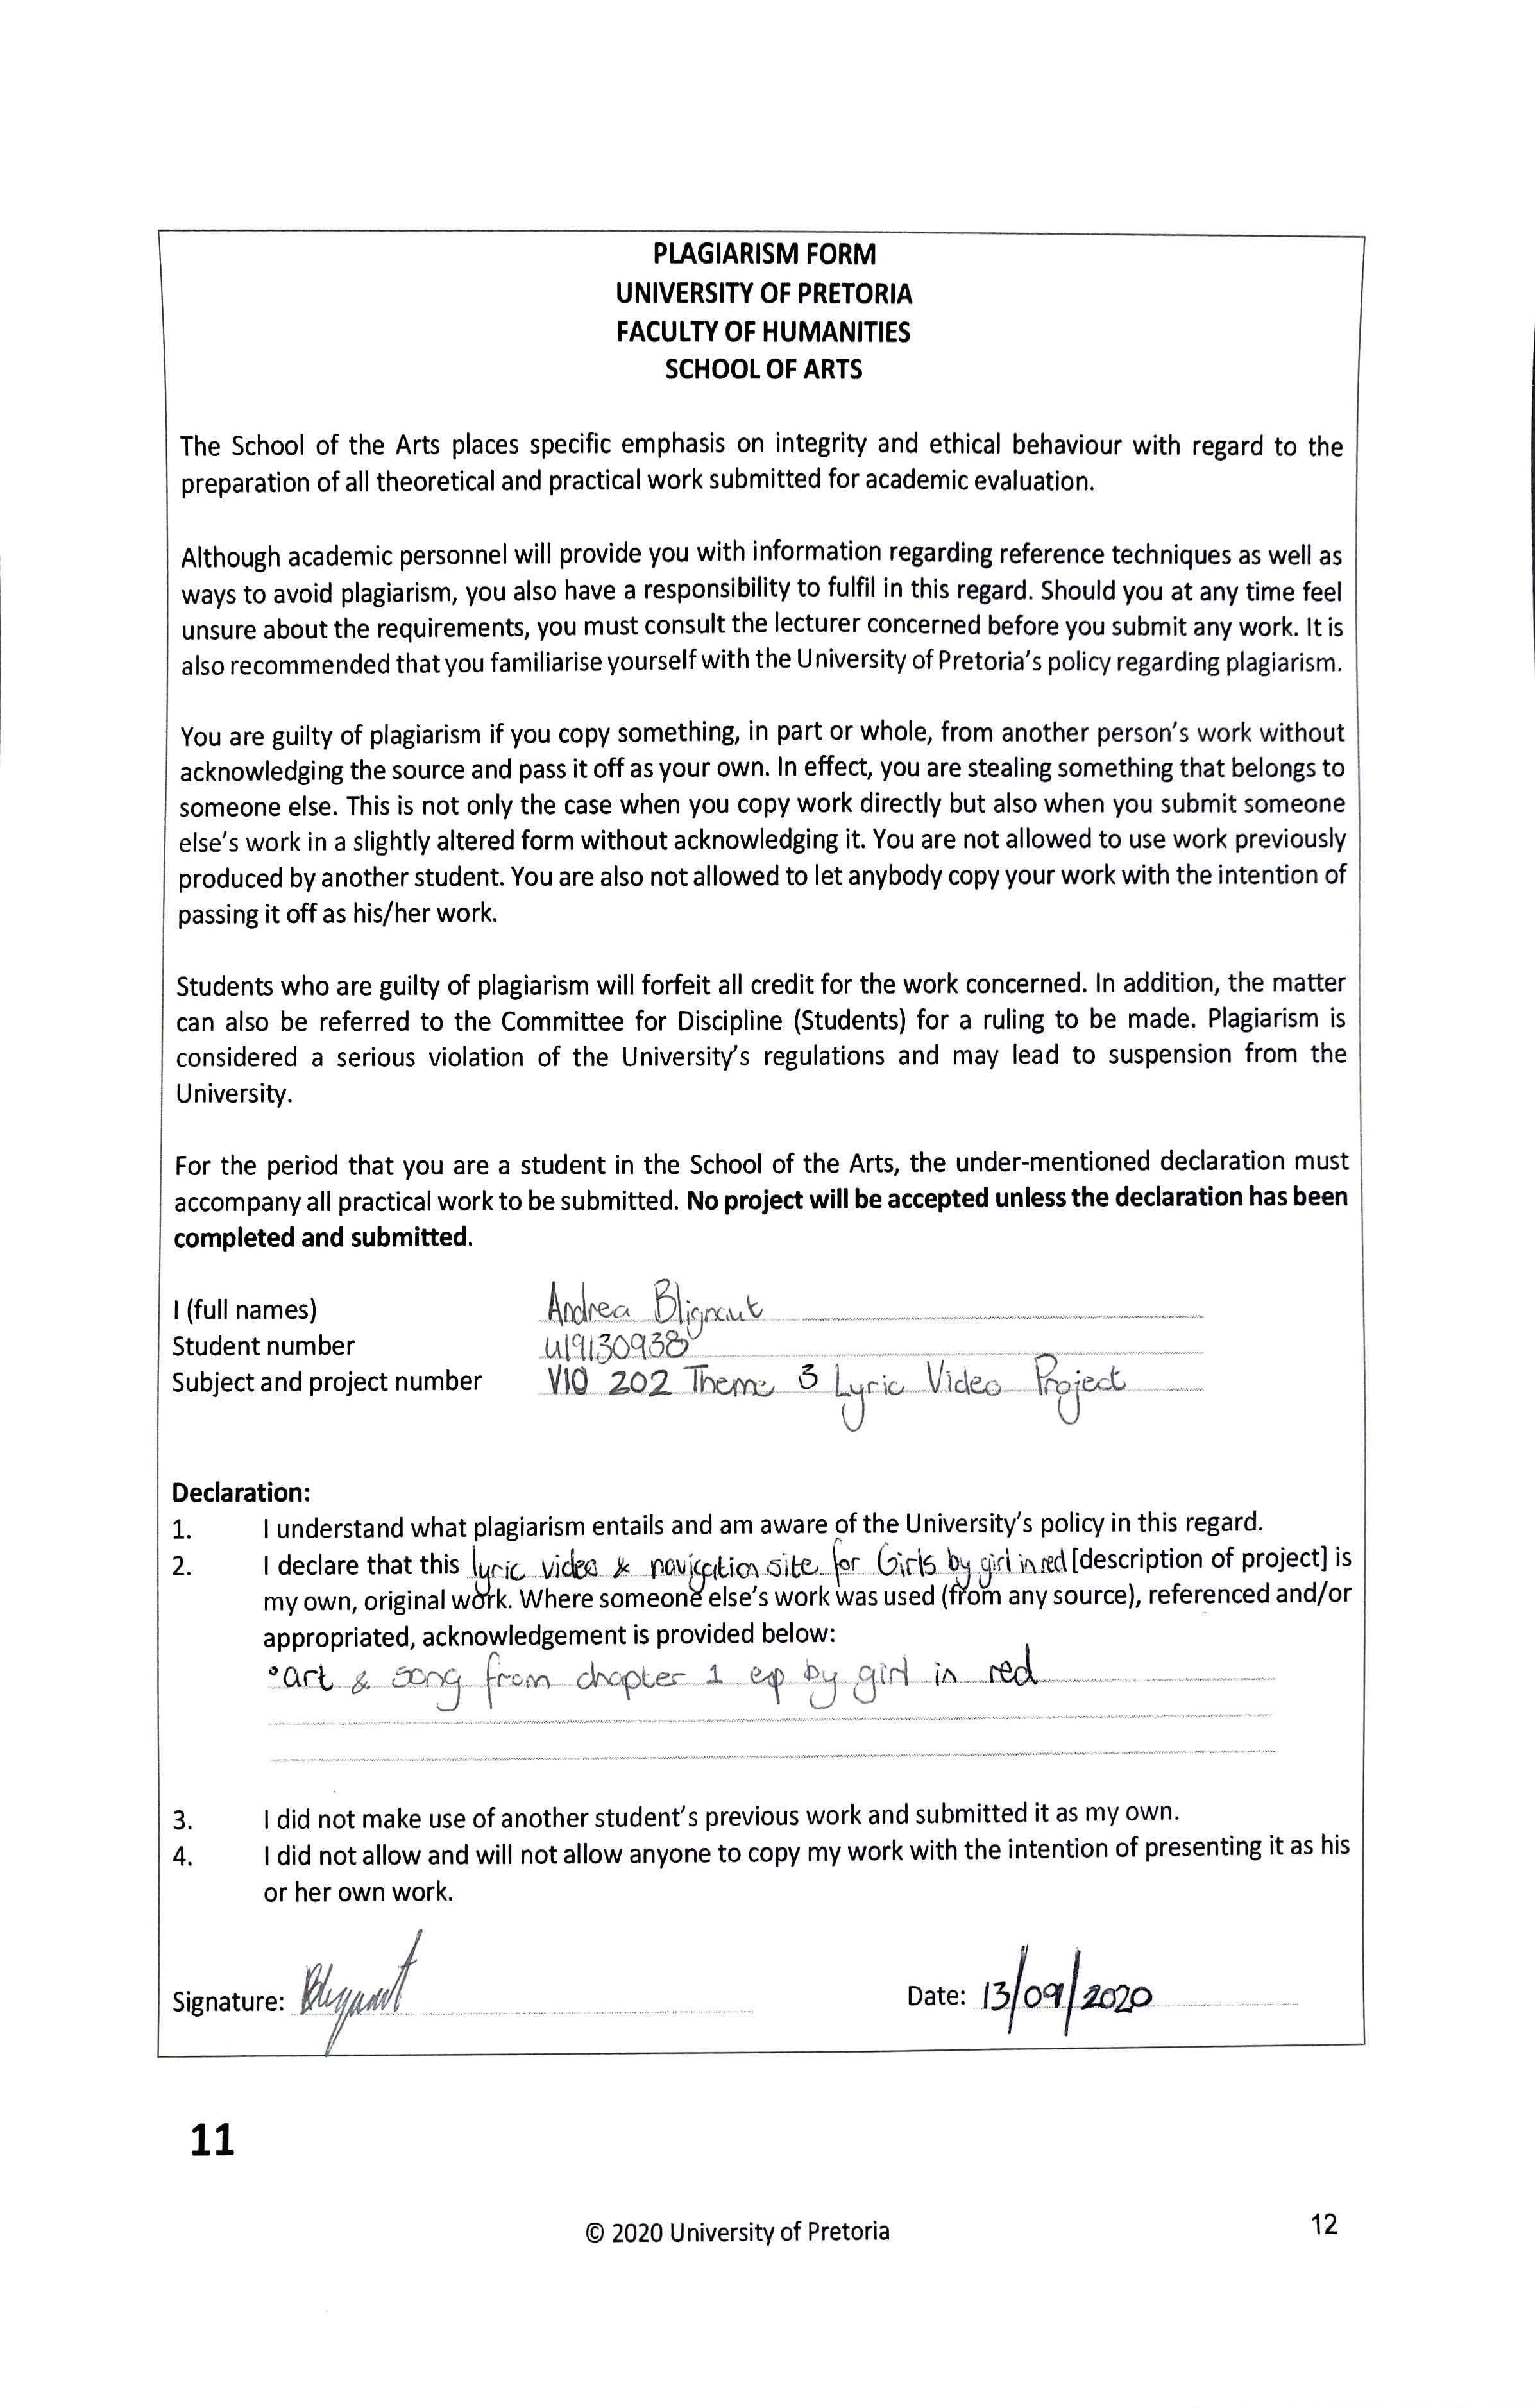 PLAGIARISM FORM
UNIVERSITY OF PRETORIA
FACULTY OF HUMANITIES
SCHOOL OF ARTS
The School of the Arts places specific emphasis on integrity and ethical behaviour with regard to the
preparation of all theoretical and practical work submitted for academic evaluation.
Although academic personnel will provide you with information regarding reference techniques as well as
ways to avoid plagiarism, you also have a responsibility to fulfil in this regard. Should you at any time feel
unsure about the requirements, you must consult the lecturer concerned before you submit any work. It is
also recommended that you familiarise yourself with the University of Pretoria's policy regarding plagiarism.
You are guilty of plagiarism if you copy something, in part or whole, from another person's work without
acknowledging the source and pass it off as your own. In effect, you are stealing something that belongs to
someone else. This is not only the case when you copy work directly but also when you submit someone
else's work in a slightly altered form without acknowledging it. You are not allowed to use work previously
produced by another student. You are also not allowed to let anybody copy your work with the intention of
passing it off as his/her work.
Students who are guilty of plagiarism will forfeit all credit for the work concerned. In addition, the matter
can also be referred to the Committee for Discipline (Students) for a ruling to be made. Plagiarism is
considered a serious violation of the University's regulations and may lead to suspension from the
University.
For the period that you are a student in the School of the Arts, the under-mentioned declaration must
accompany all practical work to be submitted. No project will be accepted unless the declaration has been
completed and submitted.
I (full names) Andrea Blignaut
Student number u19130938
Subject and project number VIO 202 Theme 3 Lyric Video Project
Declaration:
1. I understand what plagiarism entails and am aware of the University's policy in this regard.
2. I declare that this lyric video & navigation site for Girls by girl in red [description of project] is
my own, original work. Where someone else's work was used (from any source), referenced and/or
appropriated, acknowledgement is provided below:
• art & song from chapter 1 ep by girl in red
3. I did not make use of another student's previous work and submitted it as my own.
4. I did not allow and will not allow anyone to copy my work with the intention of presenting it as his
or her own work.
Signature: Blignaut Date: 13/09/2020
11
© 2020 University of Pretoria 12